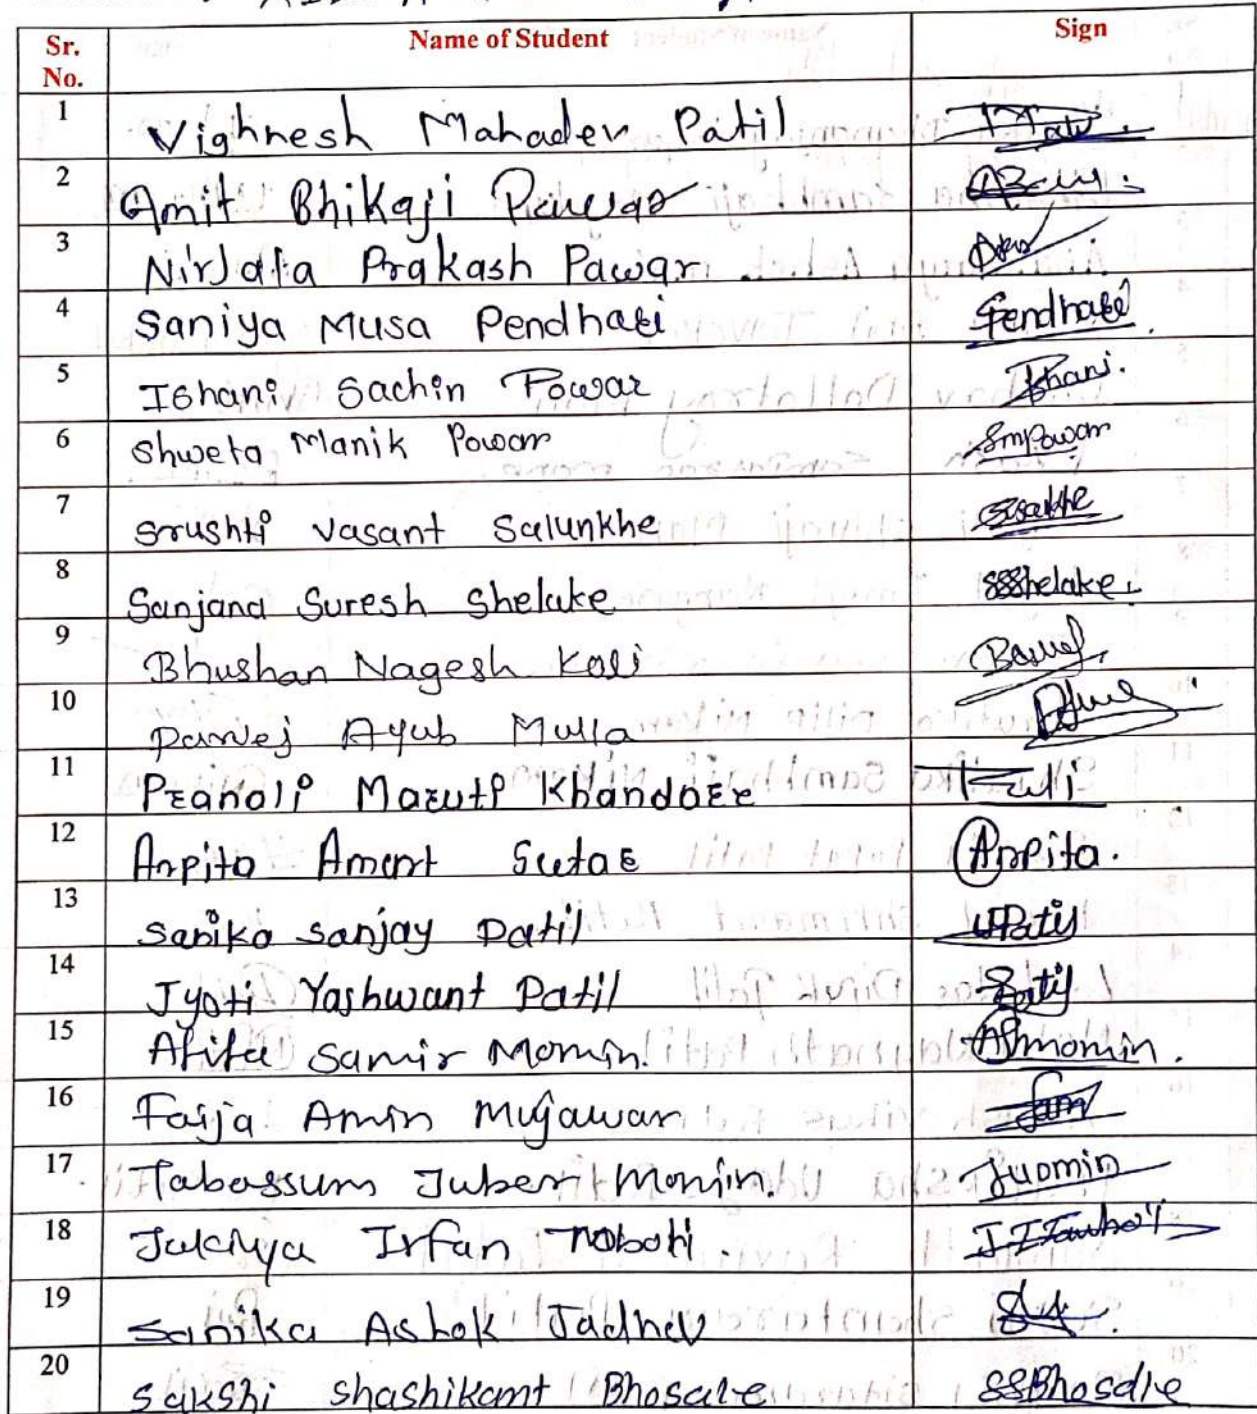 Sr. No. Name of Student Sign
1 Vighnesh Mahadev Patil
2 Amit Bhikaji Pawar
3 Nirjala Prakash Pawar
4 Saniya Musa Pendhari Pendhari
5 Ishani Sachin Powar Ishani.
6 Shweta Manik Powar SmPowar
7 Srushti Vasant Salunkhe
8 Sanjana Suresh Shelake SSShelake
9 Bhushan Nagesh Koli
10 Parvej Ayub Mulla
11 Pranali Maruti Khandare
12 Arpita Amart Sutar Arpita.
13 Sanika Sanjay Patil Patil
14 Jyoti Yashwant Patil Patil
15 Afifa Samir Momin. ASmomin.
16 Faija Amin Mujawar
17 Tabassum Juber Momin. Juomin
18 Irfan
19 Sanika Ashok Jadhav
20 Sakshi Shashikant Bhosale SSBhosale